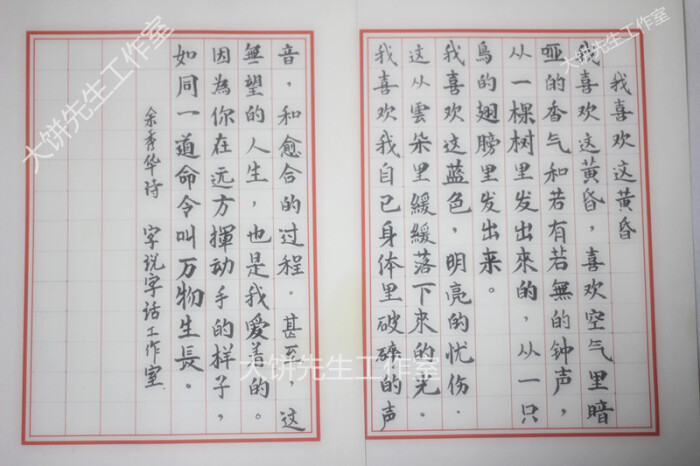 我喜欢这黄昏
我喜欢这黄昏，喜欢空气里暗
哑的香气和若有若無的钟声，
从一棵树里发出來的，从一只
鸟的翅膀里发出来。
我喜欢这蓝色，明亮的忧伤．
这从雲朵里緩緩落下来的光．
我喜欢我自己身体里破碎的声
音，和愈合的过程．甚至，这
無望的人生，也是我爱着的。
因為你在远方揮动手的样子，
如同一道命令叫万物生長。
余秀华诗 字说字话工作室
大饼先生工作室
大饼先生工作室
大饼先生工作室